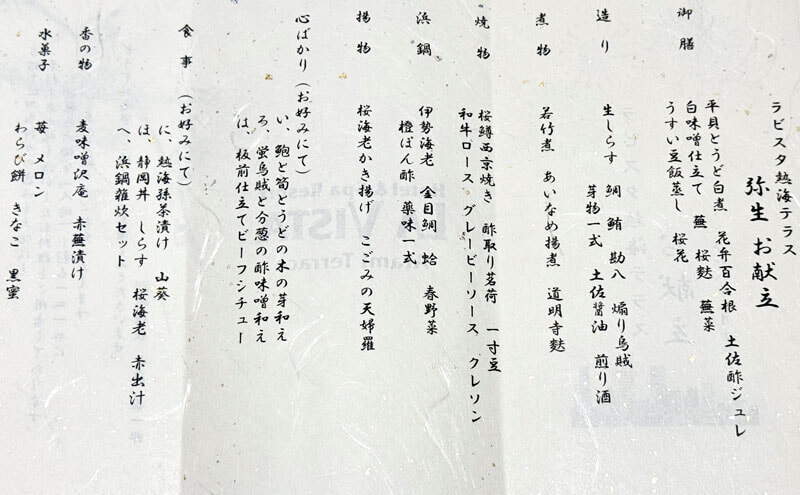 ラビスタ熱海テラス
弥生 お献立
御膳
平貝とうど白煮 花弁百合根 土佐酢ジュレ
白味噌仕立て 蕪 桜麩 蕪菜
うすい豆飯蒸し 桜花
造り
生しらす 鯛 鮪 勘八 煽り烏賊
芽物一式 土佐醤油 煎り酒
煮物
若竹煮 あいなめ揚煮 道明寺麩
焼物
桜鱒西京焼き 酢取り茗荷 一寸豆
和牛ロース グレービーソース クレソン
浜鍋
伊勢海老 金目鯛 蛤 春野菜
橙ぽん酢 薬味一式
揚物
桜海老かき揚げ こごみの天婦羅
心ばかり(お好みにて)
い、鮑と筍とうどの木の芽和え
ろ、蛍烏賊と分葱の酢味噌和え
は、板前仕立てビーフシチュー
食事(お好みにて)
に、熱海孫茶漬け 山葵
ほ、静岡丼 しらす 桜海老 赤出汁
へ、浜鍋雑炊セット
香の物
麦味噌沢庵 赤蕪漬け
水菓子
苺 メロン
わらび餅 きなこ 黒蜜